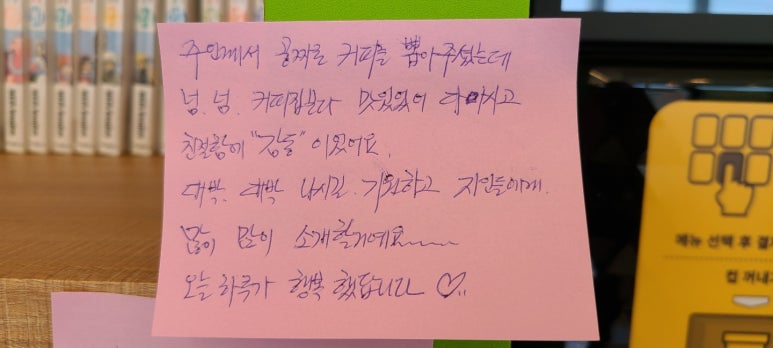 주인께서 공짜로 커피를 뽑아주셨는데
넘.넘. 커피집보다 맛있었어 다 마시고
친절함에 "감동" 이었어요.
대박. 대박 나시길 기원하고 지인들에게.
많이 많이 소개할거예요~~~
오늘 하루가 행복했답니다 ♡..
메뉴 선택 후 결
컵 꺼내